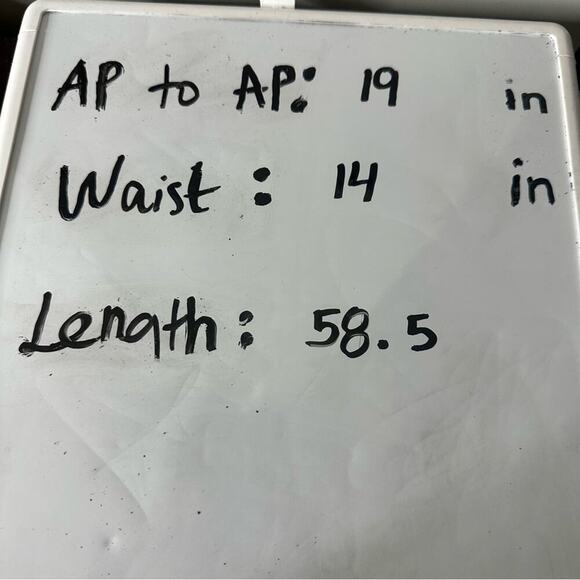 AP to AP: 19 in
Waist : 14 in
Length : 58.5